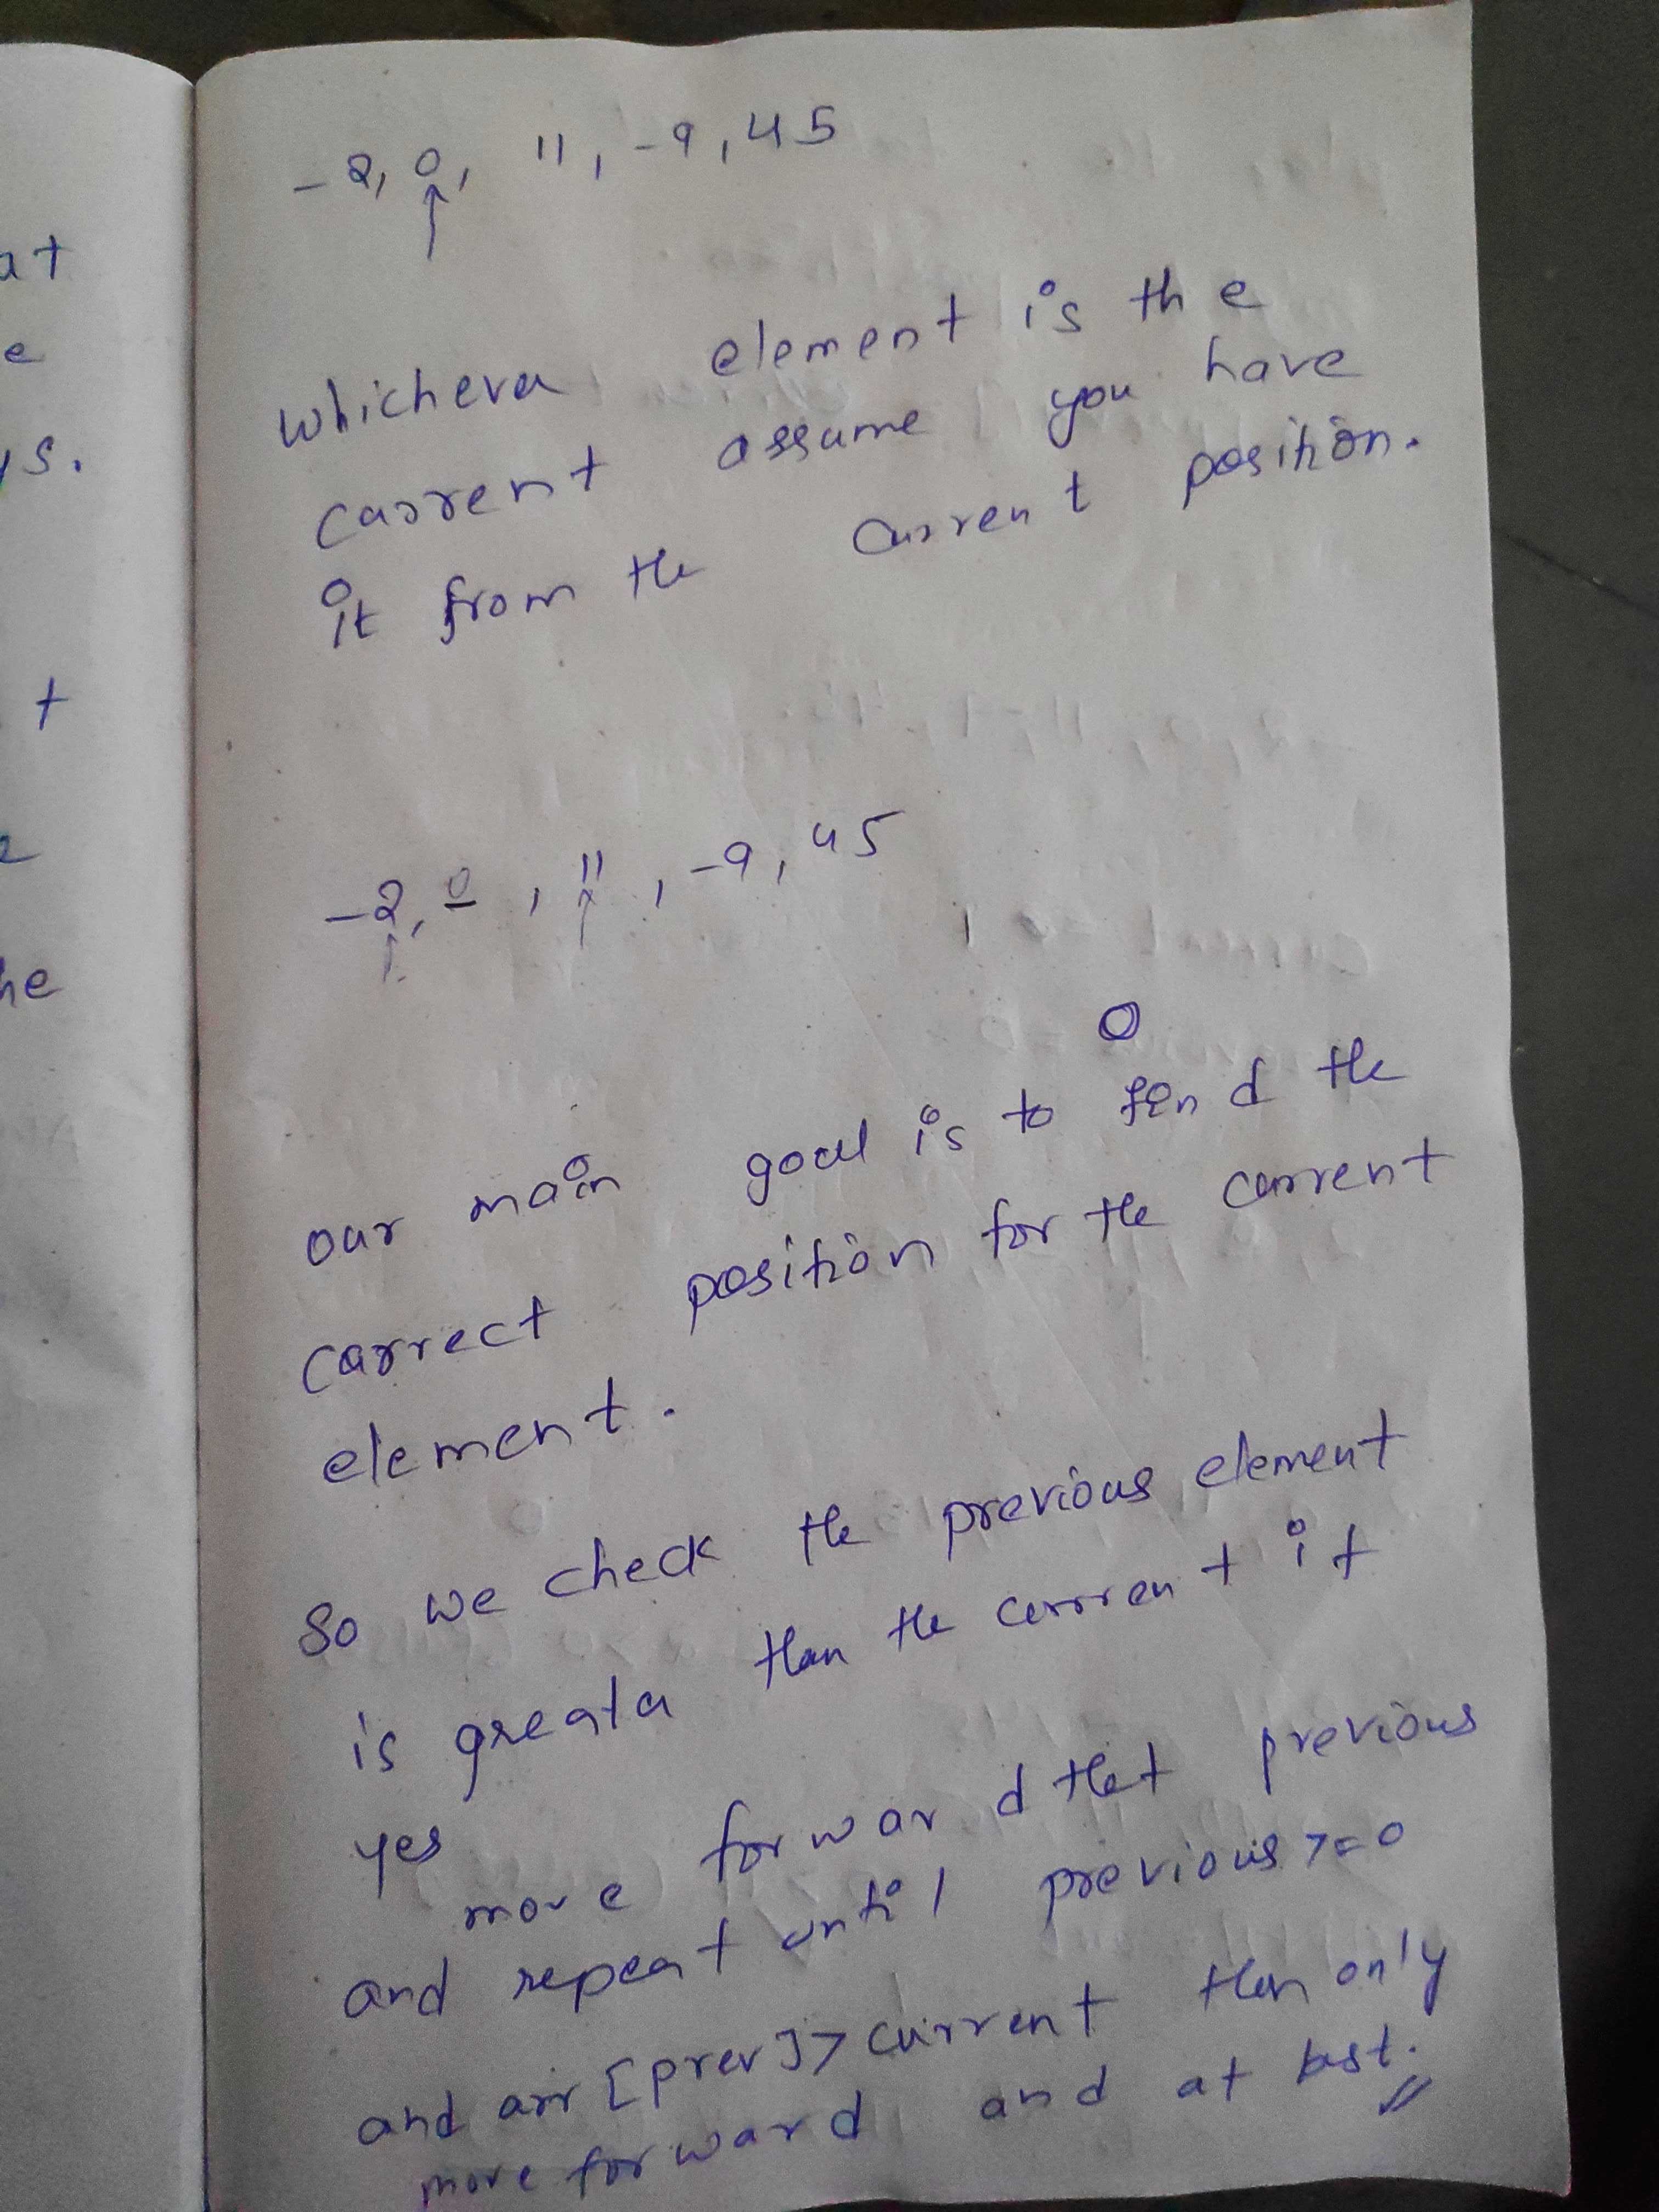 at
e
ys.
t
he
-2, 0, 11, -9, 45
whichever element is the
current assume you have
it from the current position.
-2, 0, 11, -9, 45
0
our main goal is to find the
correct position for the current
element.
So we check the previous element
is greater than the current if
yes
move forward that previous
and repeat until previous >= 0
and arr [prev] > current then only
move forward and at last.